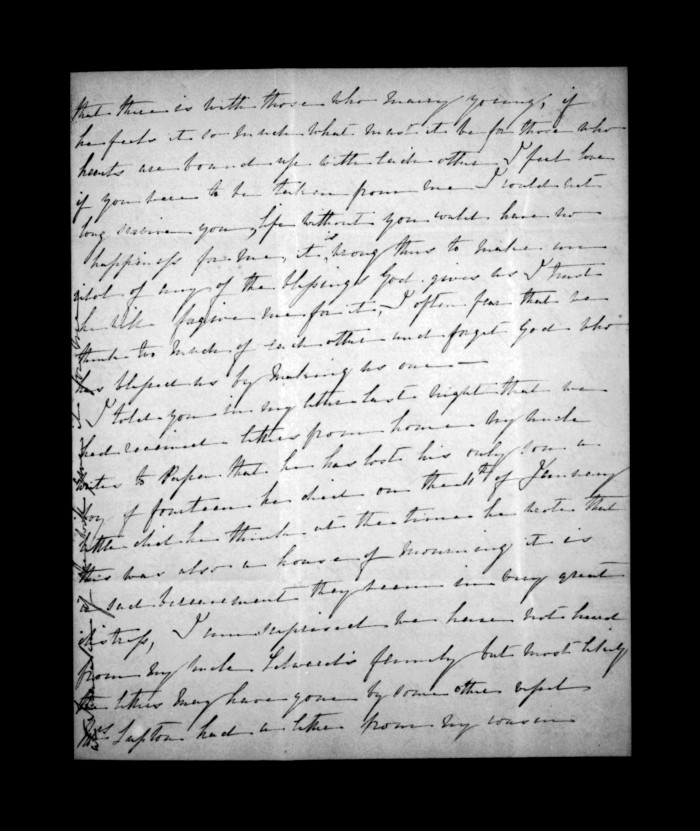 that there is with those who marry young, if
he feels it so much what must it be for those who
hearts are bound up with each other I feel love
if you were to be taken from me I could not
long survive you, life without you would have no
happiness for me, it is wrong thus to make an
idol of any of the blessings God gives us I trust
he will forgive me for it, I often fear that we
think too much of each other and forget God who
has blessed us by making us one —
I told you in my letter last night that we
had received letters from home My Uncle
writes to Papa that he has lost his only son a
boy of fourteen he died on the 4th of January
little did he think at the time he wrote that
this was also a house of mourning it is
a sad bereavement they seem in very great
distress, I am surprised we have not heard
from my uncle Edward's family but most likely
the letters may have gone by some other vessel
Mrs Lupton had a letter from my cousin